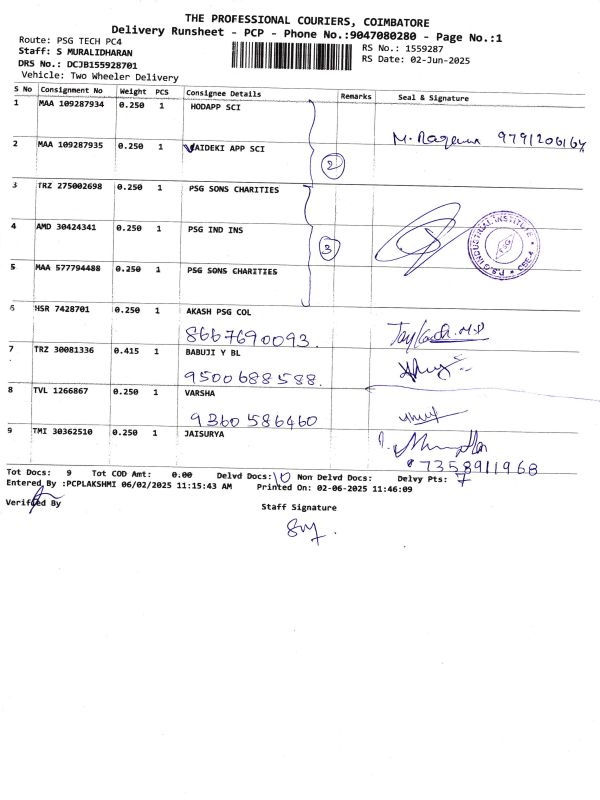 THE PROFESSIONAL COURIERS, COIMBATORE
Delivery Runsheet - PCP - Phone No.:9047080280 - Page No.:1
Route: PSG TECH PC4
RS No.: 1559287
Staff: S MURALIDHARAN
RS Date: 02-Jun-2025
DRS No.: DCJB155928701
Vehicle: Two Wheeler Delivery
S No Consignment No Weight PCS Consignee Details Remarks Seal & Signature
1 MAA 109287934 0.250 1 HODAPP SCI
9791206164
2 MAA 109287935 0.250 1 VAIDEKI APP SCI
2
3 TRZ 275002698 0.250 1 PSG SONS CHARITIES
4 AMD 30424341 0.250 1 PSG IND INS
3
P.S.G INDUSTRIAL INSTITUTE
PSG
CBE-4
5 MAA 577794488 0.250 1 PSG SONS CHARITIES
6 HSR 7428701 0.250 1 AKASH PSG COL
8667690093.
7 TRZ 30081336 0.415 1 BABUJI Y BL
9500688588.
8 TVL 1266867 0.250 1 VARSHA
9360586460
9 TMI 30362510 0.250 1 JAISURYA
7358911968
Tot Docs: 9 Tot COD Amt: 0.00 Delvd Docs: Non Delvd Docs: Delvy Pts: 7
Entered By :PCPLAKSHMI 06/02/2025 11:15:43 AM Printed On: 02-06-2025 11:46:09
Verified By
Staff Signature